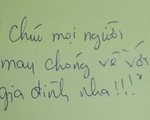 Chúc mọi người
mau chóng về với
gia đình nha!!!